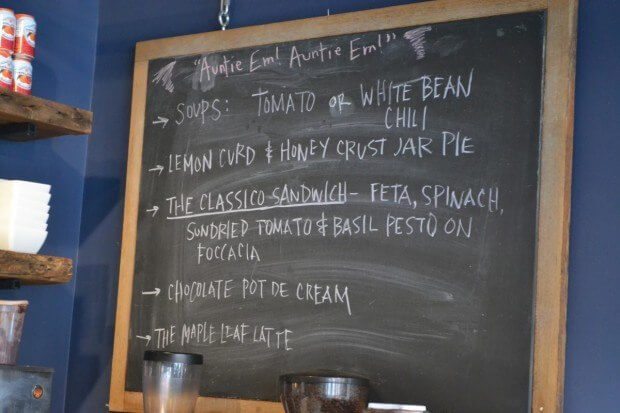 "Auntie Em! Auntie Em!"
→ SOUPS: TOMATO OR WHITE BEAN
CHILI
→ LEMON CURD & HONEY CRUST JAR PIE
→ THE CLASSICO SANDWICH - FETA, SPINACH,
SUNDRIED TOMATO & BASIL PESTO ON
FOCCACIA
→ CHOCOLATE POT DE CREAM
→ THE MAPLE LEAF LATTE